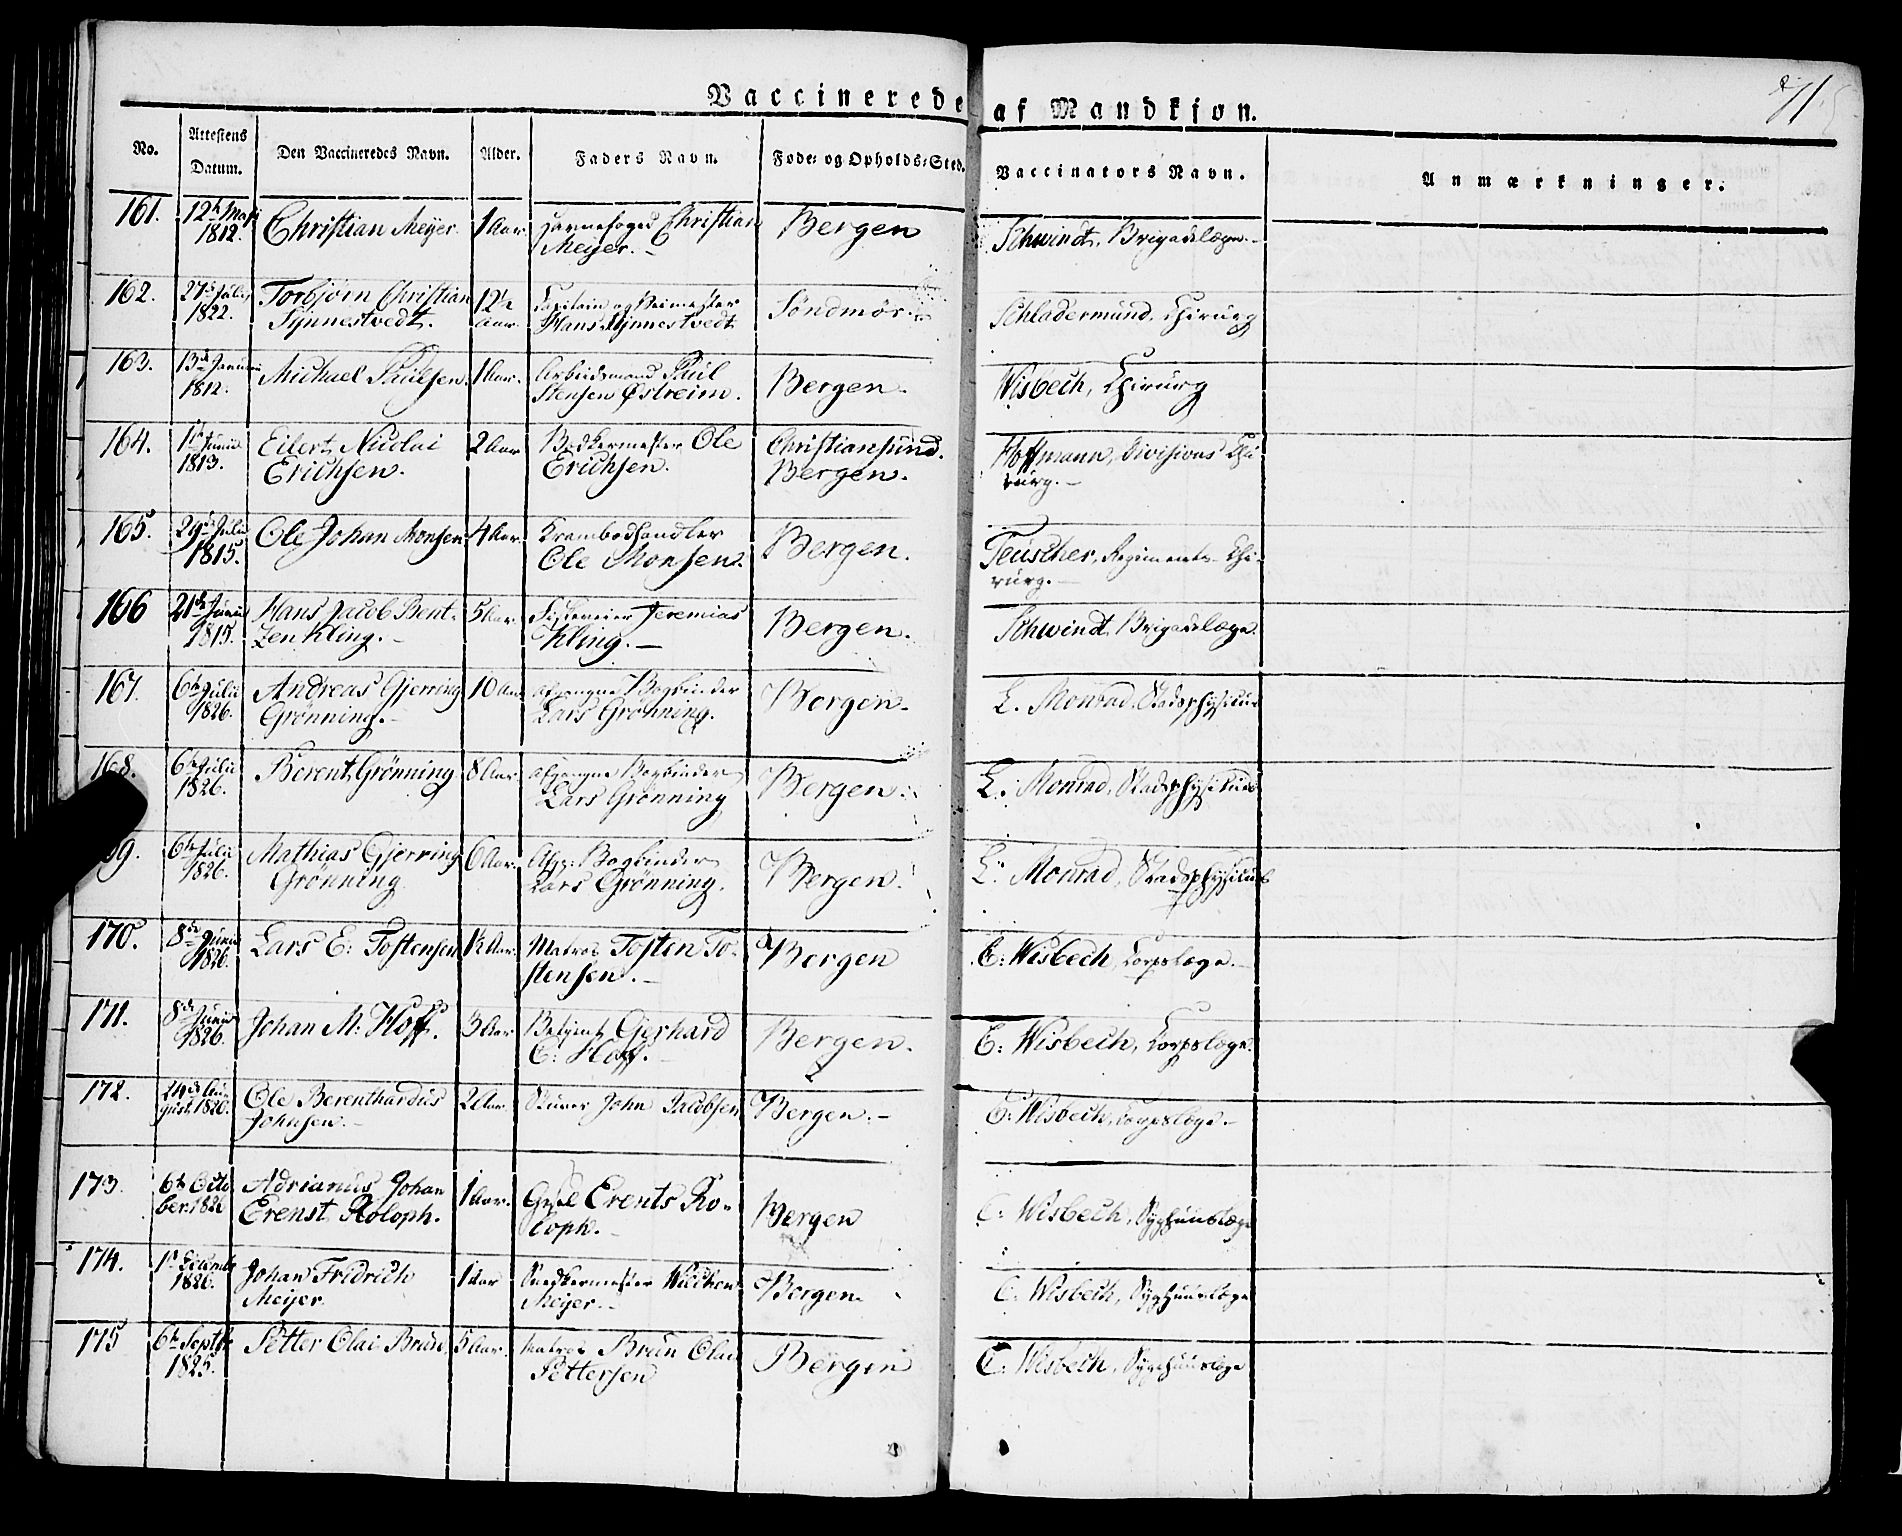 Vaccinerede af Mandkjøn.
71
No.
Attestens Datum.
Den Vaccineredes Navn.
Alder.
Faders Navn.
Føde- og Opholds-Sted.
Vaccinators Navn.
Anmærkninger.
161. 12te Maji Christian Meyer. 1 Aar. Christian Bergen Schwindt, Brigadelæge.
1812. Meyer.
162. 27de July Torbjørn Christian 12½ Capitain og Veimester Søndmør. Schladermund, Chirurg
1822. Synnestvedt. Aar. Hans Synnestvedt
163. 13de Januari Michael Paulsen. 1 Aar. Arbeidsmand Paul Bergen. Wisbech, Chirurg
1812. Stensen Østreim.
164. Junii Eilert Nicolai 2 Aar Bødkermester Ole Christiansund. Hoffmann, Divisions Chi
1813. Erichsen. Erichsen. Bergen. rurg.
165. 29de Julii Ole Johan Monsen 4 Aar. Krambodhandler Bergen. Teuscher, Regiments-Chi-
1815. Ole Monsen. rurg.
166 21de Junii Hans Jacob Bent- 5 Aar. Jeremias Bergen. Schwindt, Brigadelæge.
1815. zen Kling. Kling.
167. 6te Julii Andreas Gjerring 10 Aar afgangne Bogbinder Bergen. L. Monrad, Stadsphysicus
1826. Grønning. Lars Grønning.
168. 6te Julii Berent Grønning 8 Aar. afgangne Bogbinder Bergen. L. Monrad, Stadsphysicus
1826. Lars Grønning
69. 6te Julii Mathias Gjerring 6 Aar. Afg: Bogbinder Bergen. L. Monrad, Stadsphysicus
1826. Grønning Lars Grønning.
170. 8de Junii Lars E: Tostensen 1½ Aar. Matros Tosten To- Bergen C: Wisbech, Corpslæge.
1826. stensen.
171. 8de Junii Johan M: Hoff. 3 Aar. Betjent Gjerhard Bergen. C: Wisbech, Corpslæge.
1826. C: Hoff.
172. 14de Au- Ole Berenthardus 2 Aar. John Jacobsen Bergen. C: Wisbech, Corpslæge.
gust. 1826. Johnsen.
173. 6te Octo Adrianus Johan 1 Aar. Erents Ro- Bergen C: Wisbech, Sygehuuslæge
ber. 1826 Erenst Roloph. loph.
174. 1ste Decembr Johan Fridrich 1 Aar Snedkermester Wilcken Bergen. C. Wisbech, Sygehuuslæge
1826. Meyer. Meyer.
175 6te Septbr Petter Olai Bruun 5 Aar. Matros Bruun Olai Bergen C. Wisbech, Sygehuuslæge
1825. Pettersen